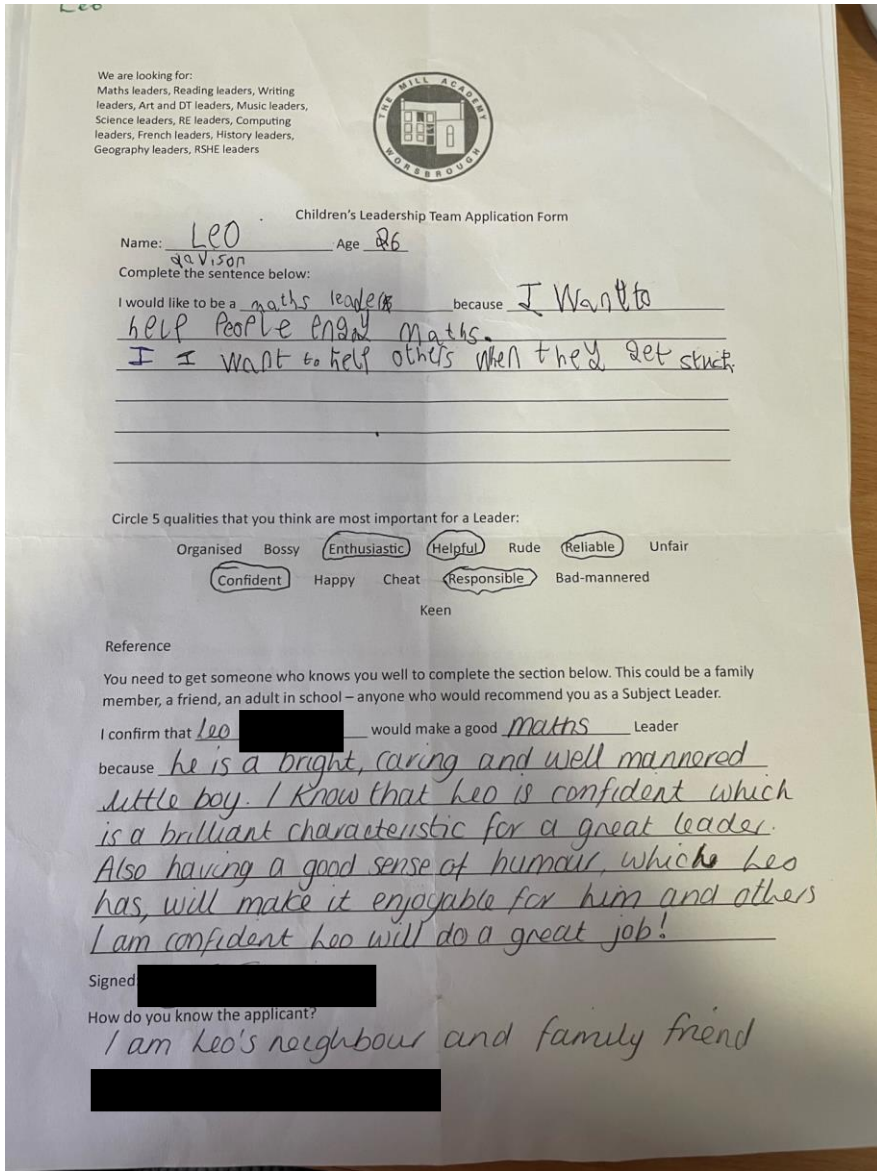 Leo
We are looking for:
Maths leaders, Reading leaders, Writing
leaders, Art and DT leaders, Music leaders,
Science leaders, RE leaders, Computing
leaders, French leaders, History leaders,
Geography leaders, RSHE leaders
THE MILL ACADEMY
WORSBROUGH
Children's Leadership Team Application Form
Name: Leo Age 6
davison
Complete the sentence below:
I would like to be a maths leader because I Want to
help PeoPle engay maths.
I I want to help others when they get stuck.
Circle 5 qualities that you think are most important for a Leader:
Organised Bossy Enthusiastic Helpful Rude Reliable Unfair
Confident Happy Cheat Responsible Bad-mannered
Keen
Reference
You need to get someone who knows you well to complete the section below. This could be a family
member, a friend, an adult in school – anyone who would recommend you as a Subject Leader.
I confirm that Leo would make a good maths Leader
because he is a bright, caring and well mannered
little boy. I know that Leo is confident which
is a brilliant characteristic for a great leader.
Also having a good sense of humour, which Leo
has, will make it enjoyable for him and others
I am confident Leo will do a great job!
Signed
How do you know the applicant?
I am Leo's neighbour and family friend